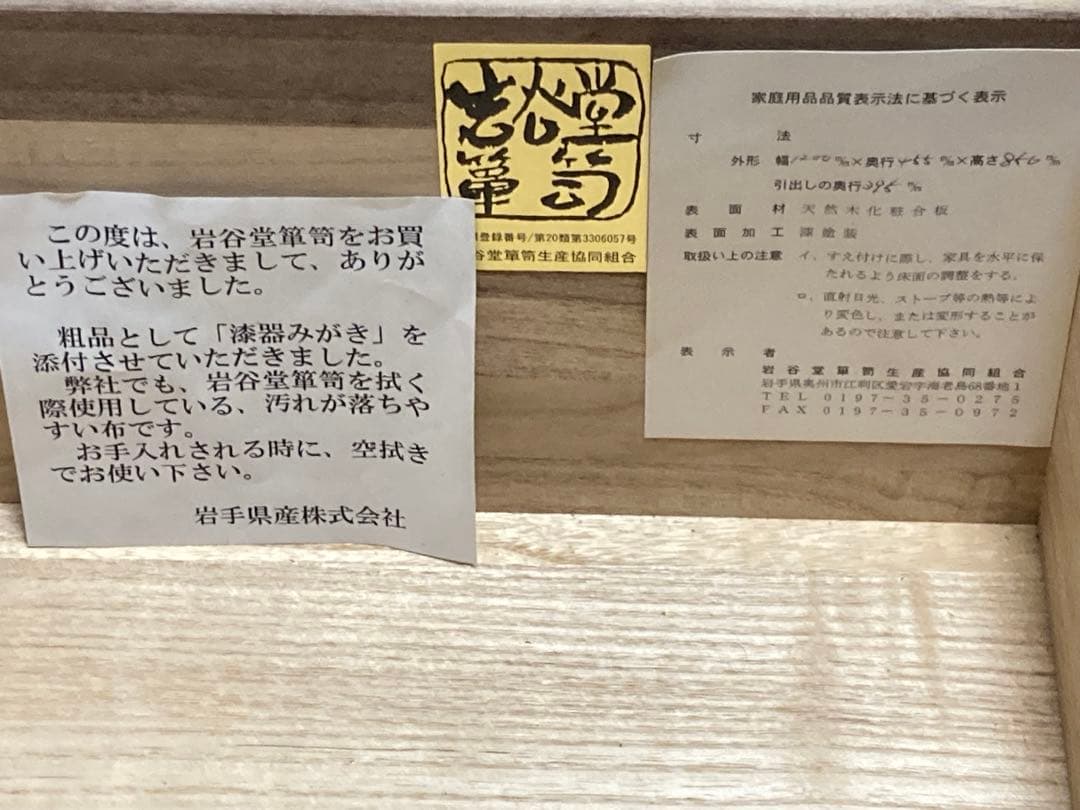 この度は、岩谷堂箪笥をお買
い上げいただきまして、ありが
とうございました。
粗品として「漆器みがき」を
添付させていただきました。
弊社でも、岩谷堂箪笥を拭く
際使用している、汚れが落ちや
すい布です。
お手入れされる時に、空拭き
でお使い下さい。
岩手県産株式会社
岩谷堂
箪笥
登録番号/第20類第3306057号
谷堂箪笥生産協同組合
家庭用品品質表示法に基づく表示
寸 法
外形 幅1200㎜×奥行455㎜×高さ860㎜
引出しの奥行395㎜
表面材 天然木化粧合板
表面加工 漆塗装
取扱い上の注意 イ、すえ付けに際し、家具を水平に保
たれるよう床面の調整をする。
ロ、直射日光、ストーブ等の熱等によ
り変色し、または変形することが
あるので注意して下さい。
表示者
岩谷堂箪笥生産協同組合
岩手県奥州市江刺区愛宕字海老島68番地1
TEL 0197-35-0275
FAX 0197-35-0972